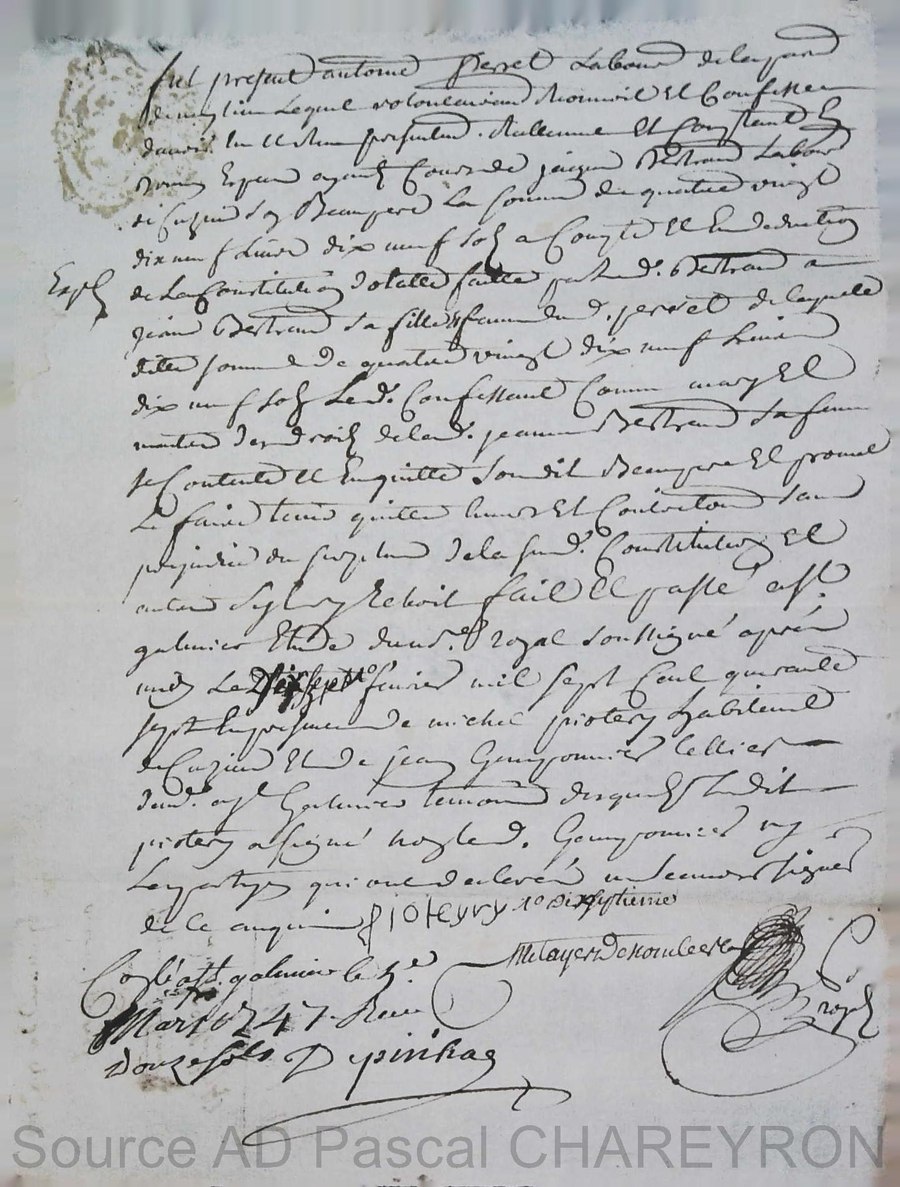 fut présent antoine perret Labour de la parr
lequel volontairem Reconnoit Et Confesse
davoir Receu presentem. Réellement Et Comptant En
Bonnes Espece ayant Cours de jacque Bertrand Labour
de Cuzieu Son Beaupere La somme de quatre vingt
dix neuf Livre dix neuf sols a Compte Et En deduction
Expé
de La Constitution dotalle faitte par led. Bertrand a
jeanne Bertrand Sa fille femme dud. perret de laquelle
ditte somme de quatre vingt dix neuf Livres
dix neuf sols Led. Confessant Comme mary Et
maitre des droits de lad. jeanne Bertrand Sa femme
se Contente Et En quitte Sondit Beaupere Et promet
Le faire tenir quitte Envers Et Contre tous Sans
prejudice du surplus de la susd. Constitution Et
autres Fait Et passé a St.
galmier Etude du no.re royal Soussigné après
midy Le Dix sept.e fevrier mil sept Cent quarante
sept En presence de michel piotery habitant
de Cuzieu Et de jean Gemponnier Cellier
dud. St Galmier temoins desquels Ledit
piotery a signé non led. Gemponnier ny
Les partyes qui ont declaré ne Scavoir signer
de ce enquis piotEyry 1o dixseptieme
Metayer Denombre
Royal
Conlé a St. galmier le 1er
Mars 1747. Receu
Douze sols Depinhac
Source AD Pascal CHAREYRON